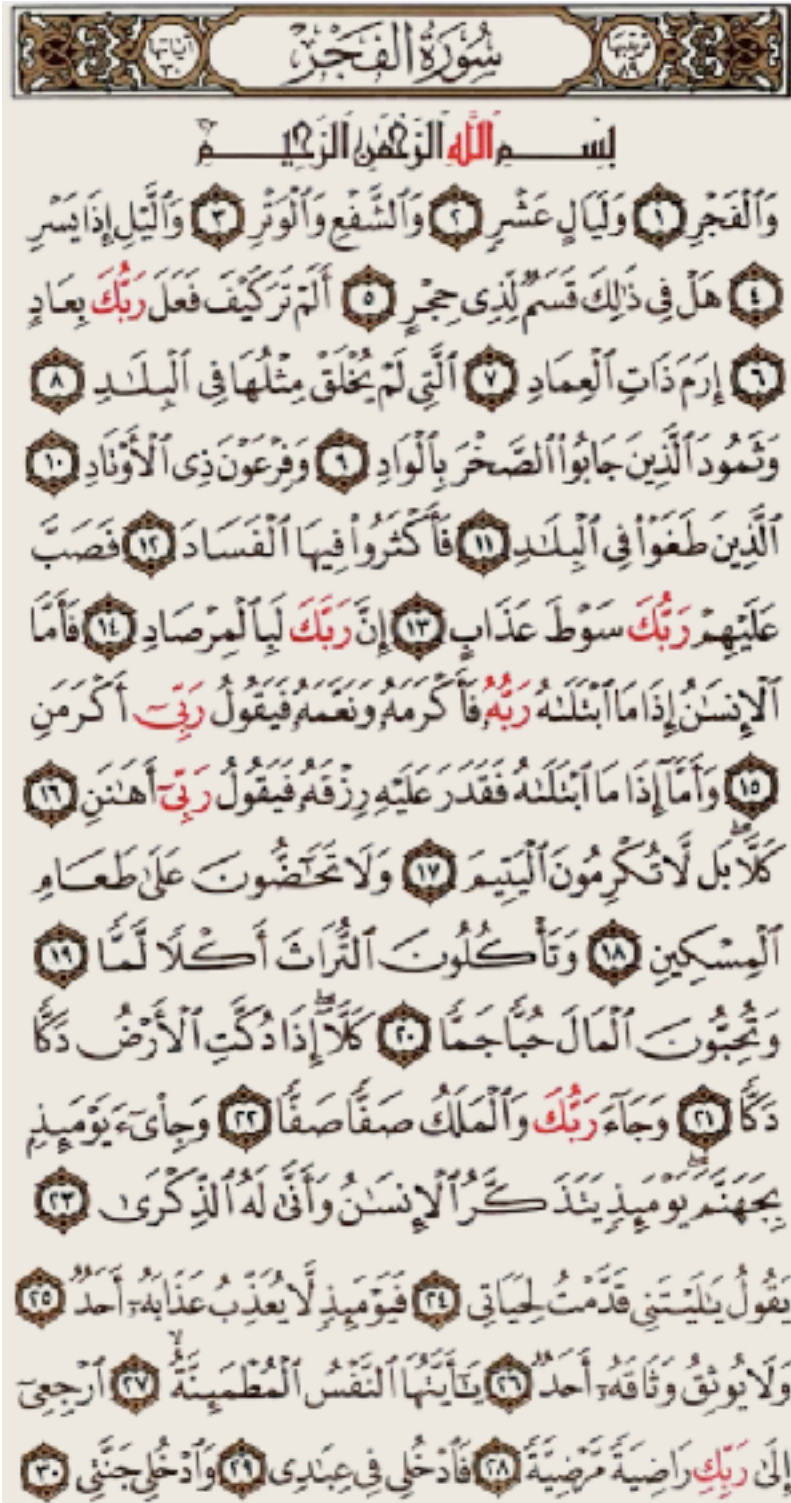 ترتيبها ٨٩ سُورَةُ الفَجْرِ آياتها ٣٠
بِسْمِ ٱللَّهِ ٱلرَّحْمَٰنِ ٱلرَّحِيمِ
وَٱلْفَجْرِ ١ وَلَيَالٍ عَشْرٍ ٢ وَٱلشَّفْعِ وَٱلْوَتْرِ ٣ وَٱلَّيْلِ إِذَا يَسْرِ
٤ هَلْ فِي ذَٰلِكَ قَسَمٌ لِّذِي حِجْرٍ ٥ أَلَمْ تَرَ كَيْفَ فَعَلَ رَبُّكَ بِعَادٍ
٦ إِرَمَ ذَاتِ ٱلْعِمَادِ ٧ ٱلَّتِي لَمْ يُخْلَقْ مِثْلُهَا فِي ٱلْبِلَٰدِ ٨
وَثَمُودَ ٱلَّذِينَ جَابُوا۟ ٱلصَّخْرَ بِٱلْوَادِ ٩ وَفِرْعَوْنَ ذِي ٱلْأَوْتَادِ ١٠
ٱلَّذِينَ طَغَوْا۟ فِي ٱلْبِلَٰدِ ١١ فَأَكْثَرُوا۟ فِيهَا ٱلْفَسَادَ ١٢ فَصَبَّ
عَلَيْهِمْ رَبُّكَ سَوْطَ عَذَابٍ ١٣ إِنَّ رَبَّكَ لَبِٱلْمِرْصَادِ ١٤ فَأَمَّا
ٱلْإِنسَٰنُ إِذَا مَا ٱبْتَلَىٰهُ رَبُّهُۥ فَأَكْرَمَهُۥ وَنَعَّمَهُۥ فَيَقُولُ رَبِّىٓ أَكْرَمَنِ
١٥ وَأَمَّآ إِذَا مَا ٱبْتَلَىٰهُ فَقَدَرَ عَلَيْهِ رِزْقَهُۥ فَيَقُولُ رَبِّىٓ أَهَٰنَنِ ١٦
كَلَّا ۖ بَل لَّا تُكْرِمُونَ ٱلْيَتِيمَ ١٧ وَلَا تَحَٰٓضُّونَ عَلَىٰ طَعَامِ
ٱلْمِسْكِينِ ١٨ وَتَأْكُلُونَ ٱلتُّرَاثَ أَكْلًا لَّمًّا ١٩
وَتُحِبُّونَ ٱلْمَالَ حُبًّا جَمًّا ٢٠ كَلَّآ ۖ إِذَا دُكَّتِ ٱلْأَرْضُ دَكًّا
دَكًّا ٢١ وَجَآءَ رَبُّكَ وَٱلْمَلَكُ صَفًّا صَفًّا ٢٢ وَجِا۟ىٓءَ يَوْمَئِذٍۭ
بِجَهَنَّمَ ۚ يَوْمَئِذٍ يَتَذَكَّرُ ٱلْإِنسَٰنُ وَأَنَّىٰ لَهُ ٱلذِّكْرَىٰ ٢٣
يَقُولُ يَٰلَيْتَنِى قَدَّمْتُ لِحَيَاتِى ٢٤ فَيَوْمَئِذٍ لَّا يُعَذِّبُ عَذَابَهُۥٓ أَحَدٌ ٢٥
وَلَا يُوثِقُ وَثَاقَهُۥٓ أَحَدٌ ٢٦ يَٰٓأَيَّتُهَا ٱلنَّفْسُ ٱلْمُطْمَئِنَّةُ ٢٧ ٱرْجِعِىٓ
إِلَىٰ رَبِّكِ رَاضِيَةً مَّرْضِيَّةً ٢٨ فَٱدْخُلِى فِى عِبَٰدِى ٢٩ وَٱدْخُلِى جَنَّتِى ٣٠